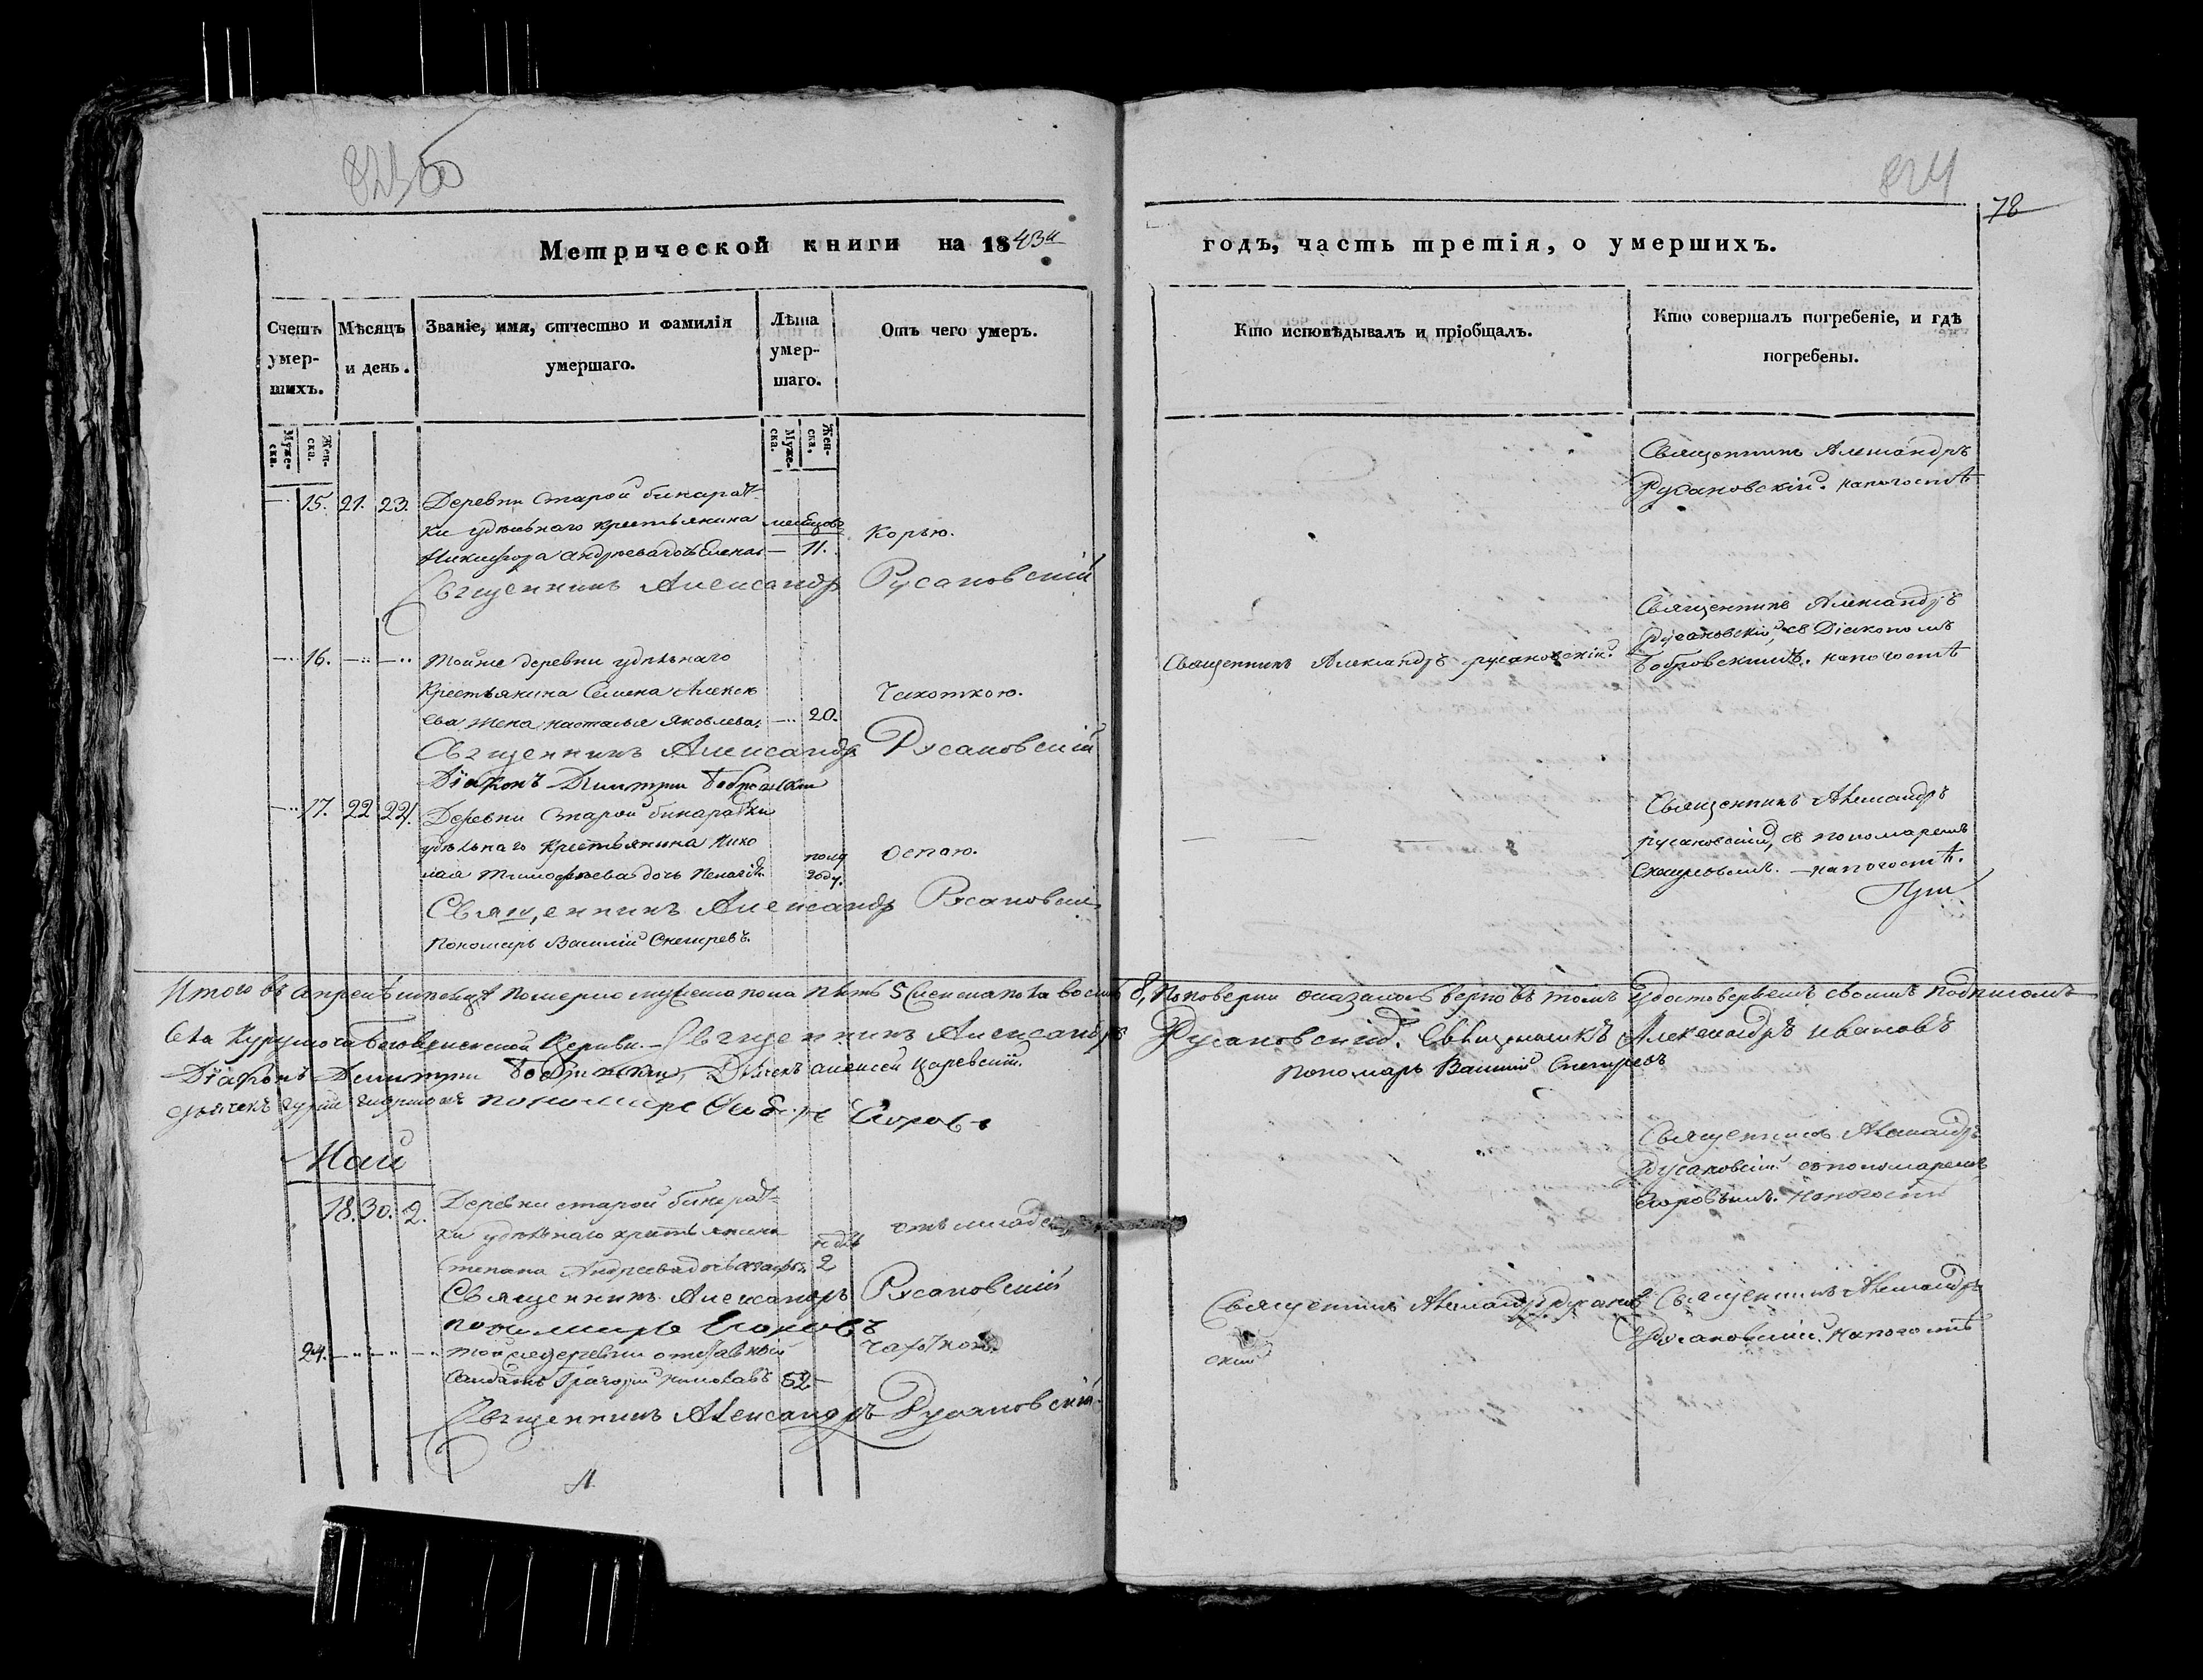 823 об
Метрической книги на 1843й
Счетъ умер-шихъ.
Мѣсяцъ и день.
Званіе, имя, отчество и фамилія умершаго.
Лѣта умер-шаго.
Отъ чего умеръ.
Муже-ска.
Жен-ска.
Муже-ска.
Жен-ска.
15. 21. 23. Деревни Старой бинарад-
ки удѣльнаго крестьянина месецовъ
Никифора Андреева дочь Елена — 11. Корью.
Священникъ Александр Русановскій
16. Тойже деревни удѣльнаго
Крестьянина Семена Алексѣ
ева жена Настасья Яковлева. 20. Чахоткою.
Священникъ Александр Русановскій
Діаконъ Димитрии Бобровскии
17. 22 24. Деревни Старой бинарадки
удѣльнаго крестьянина Нико
лая Тимофѣева дочь полу году. Оспою.
Священникъ Александр Русановскій
Пономарь Василій Снегиревъ.
Итого въ апрелѣ месяцѣ померло мужеска пола пять 5 женска пола восемь 8,
Села Богоявленской Церкви. — Священникъ Александръ
Діаконъ Димитрии Бобровскии, Дьячекъ Алексей Царевскій.
дьячекъ пономарь Егоровъ
Май
18. 30. 2. Деревни старой бинарад-
ки удѣльнаго крестьянина недѣль
Степана Андреева дочь 2 отъ младен
Священникъ Александръ Русановскій
пономарь Егоровъ
24. Тойже деревни отставный чахоткою.
Салдатъ Григорій 52 —
Священникъ Александръ Русановскій
824
78
годъ, часть третія, о умершихъ.
Кто исповѣдывалъ и пріобщалъ.
Кто совершалъ погребеніе, и гдѣ погребены.
Священникъ Александръ
Русановскій. на погостѣ
Священникъ Александръ русановскій.
Священникъ Александръ
Русановскій, съ Діакономъ
Бобровскимъ. на погостѣ
Священникъ Александръ
русановскій, съ пономаремъ
Снегиревымъ. — на погостѣ.
По поверки оказалось верно въ томъ удостоверяемъ своимъ подписомъ
Русановскій. Священникъ Александръ Ивановъ
Пономарь Василій Снегиревъ
Священникъ Александръ
Русановскій съ пономаремъ
Егоровымъ. на погостѣ
Священникъ Александръ русанов
скій
Священникъ Александръ
Русановскій. на погостѣ